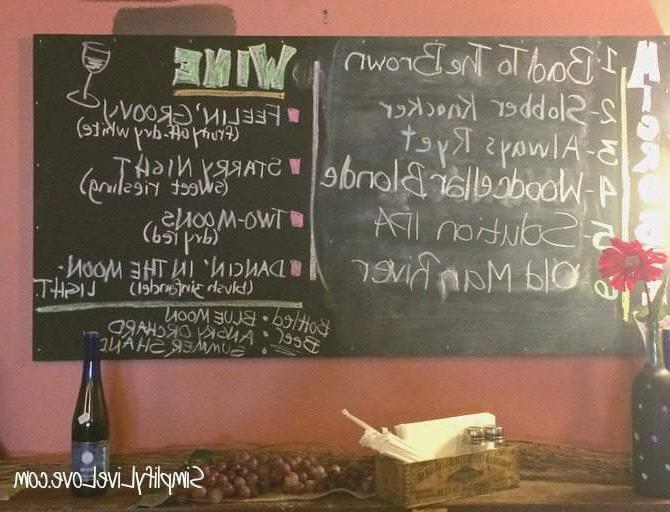 1 Bad To The Brown
2- Slobber Knocker
3 Always Ryet
4- Woodcellar Blonde
5 Solution IPA
6 Old Man River
WINE
FEELIN' GROOVY
(fruity off-dry white)
STARRY NIGHT
(sweet riesling)
TWO-MOONS
(dry red)
DANCIN' IN THE MOON-
LIGHT
(blush zinfandel)
Bottled Beer
• BLUE MOON
• ANGRY ORCHARD
• SUMMER SHAND
SimplifyLiveLove.com